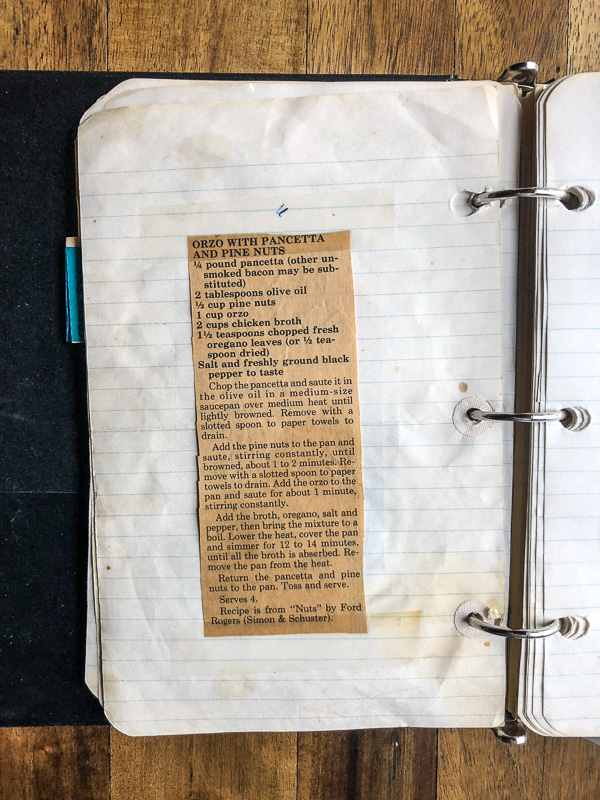 ORZO WITH PANCETTA
AND PINE NUTS
¼ pound pancetta (other un-
smoked bacon may be sub-
stituted)
2 tablespoons olive oil
½ cup pine nuts
1 cup orzo
2 cups chicken broth
1½ teaspoons chopped fresh
oregano leaves (or ½ tea-
spoon dried)
Salt and freshly ground black
pepper to taste
Chop the pancetta and saute it in
the olive oil in a medium-size
saucepan over medium heat until
lightly browned. Remove with a
slotted spoon to paper towels to
drain.
Add the pine nuts to the pan and
saute, stirring constantly, until
browned, about 1 to 2 minutes. Re-
move with a slotted spoon to paper
towels to drain. Add the orzo to the
pan and saute for about 1 minute,
stirring constantly.
Add the broth, oregano, salt and
pepper, then bring the mixture to a
boil. Lower the heat, cover the pan
and simmer for 12 to 14 minutes,
until all the broth is abserbed. Re-
move the pan from the heat.
Return the pancetta and pine
nuts to the pan. Toss and serve.
Serves 4.
Recipe is from “Nuts” by Ford
Rogers (Simon & Schuster).